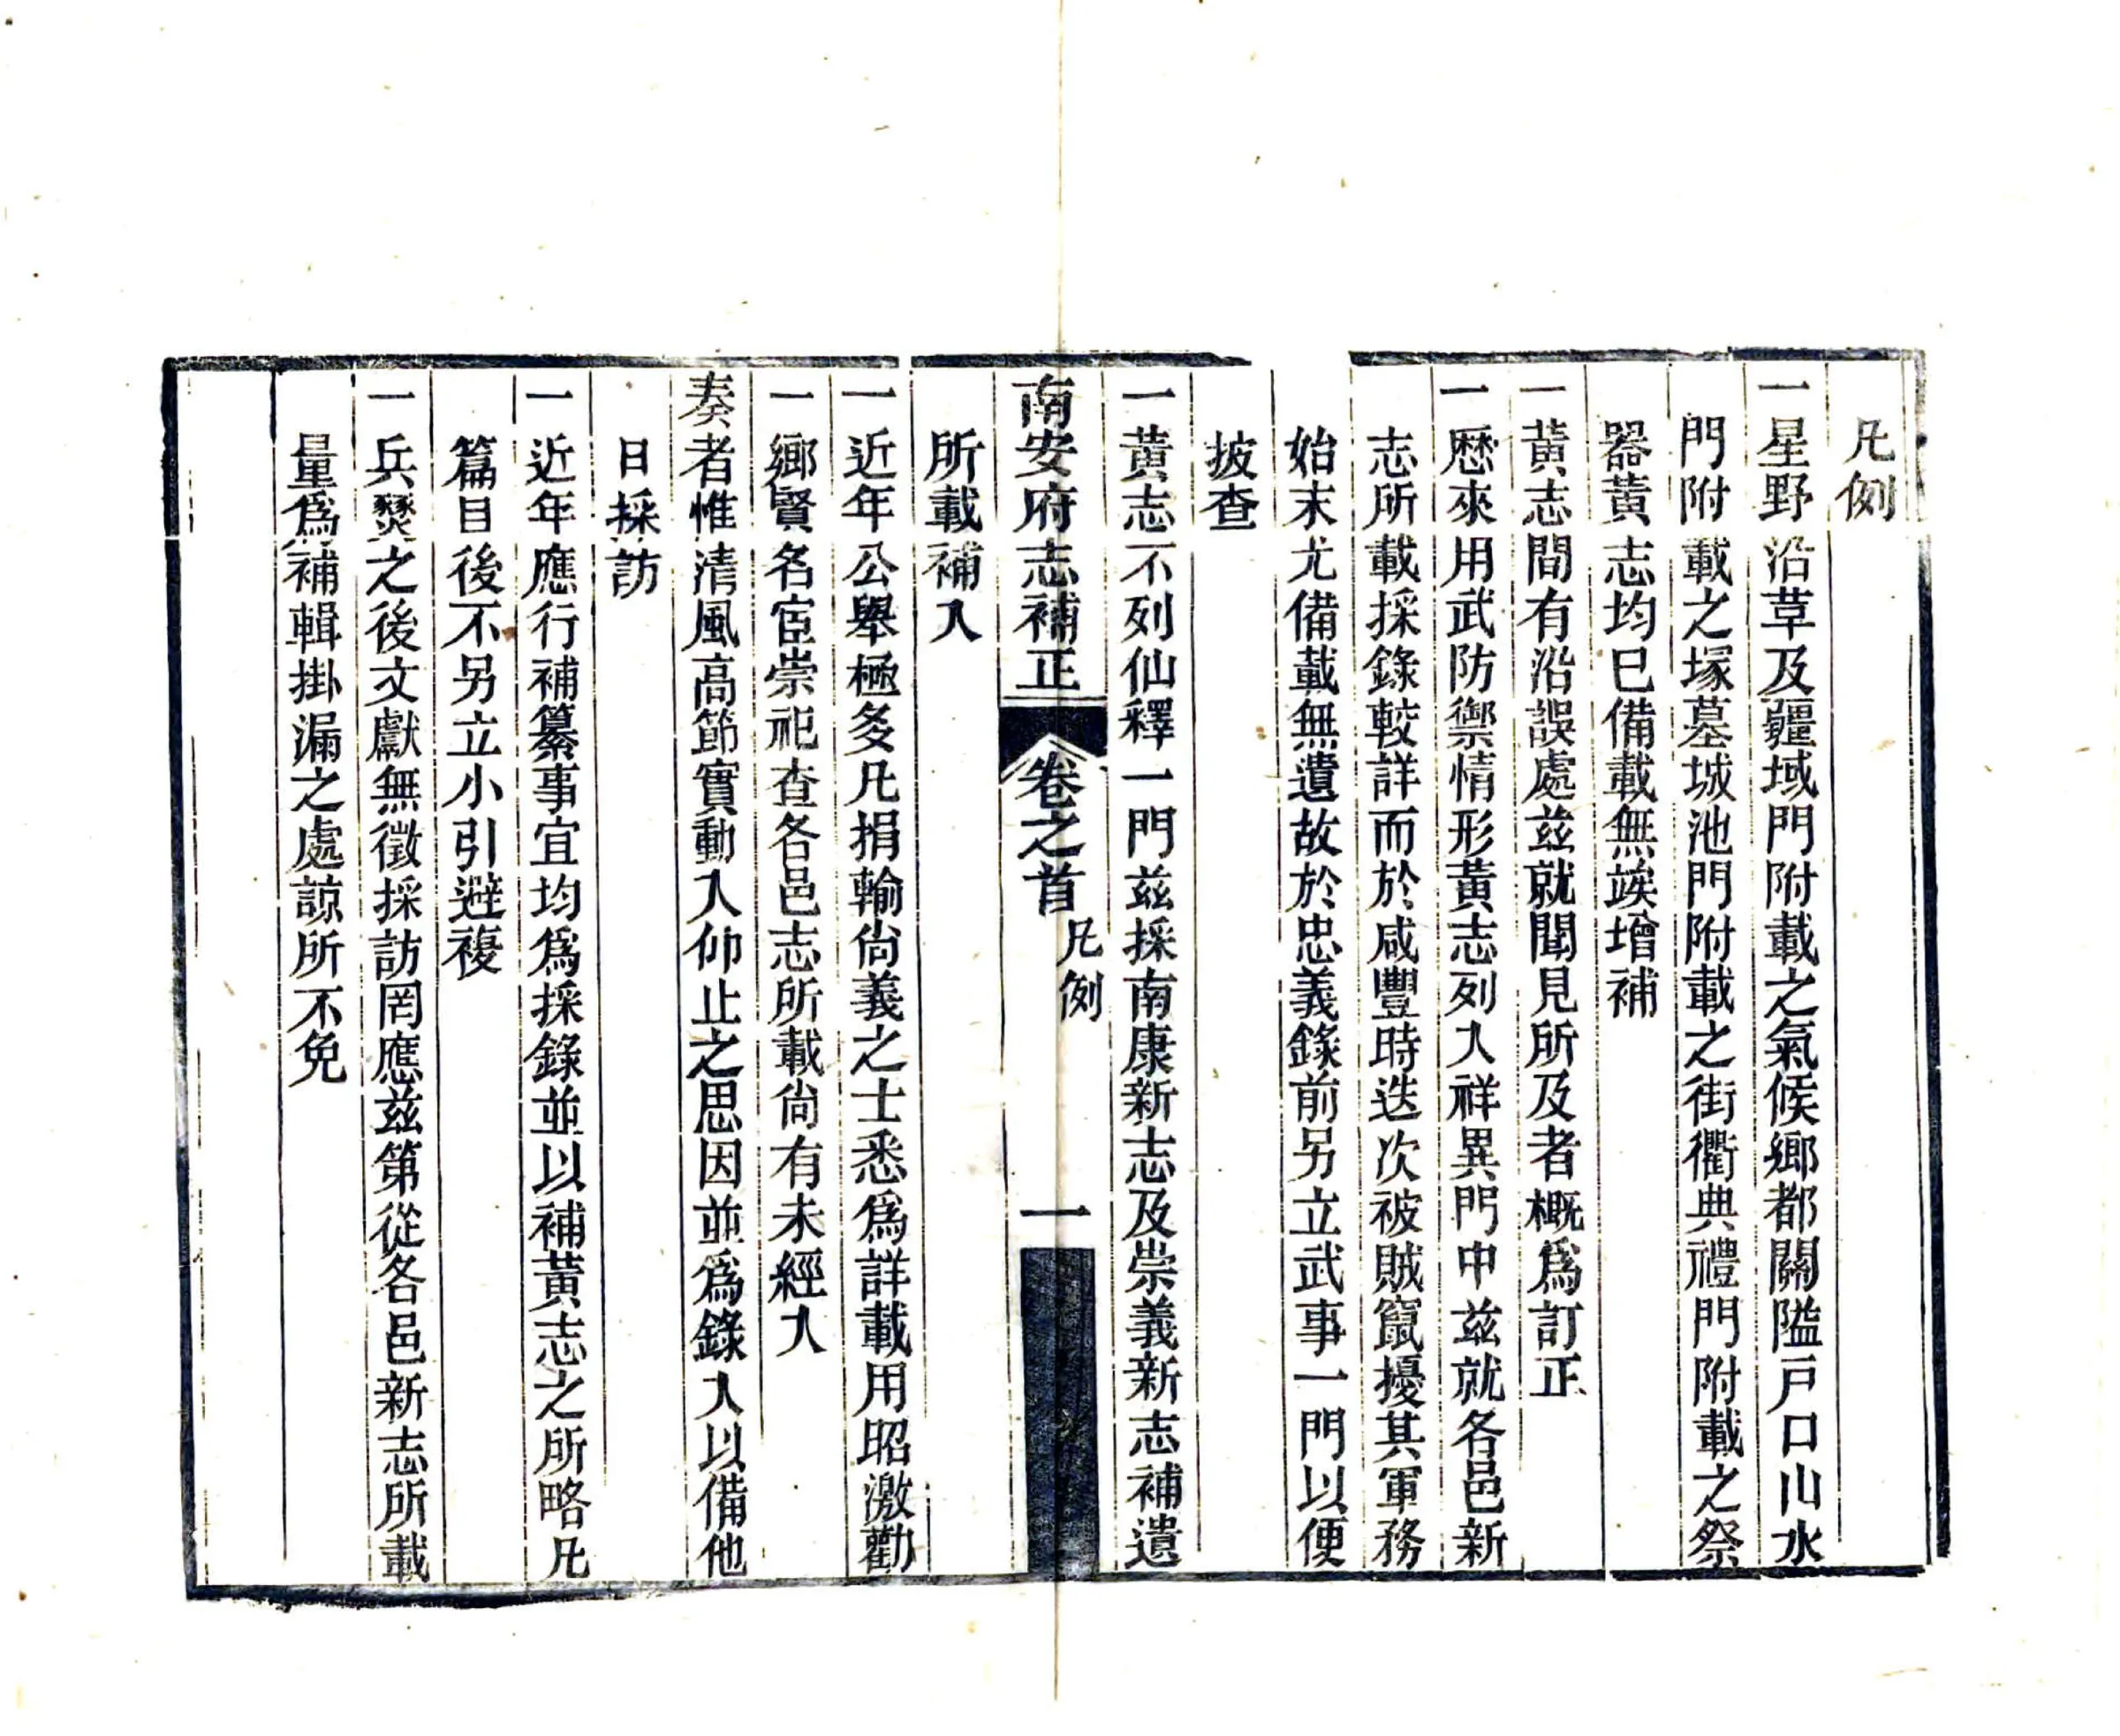 凡例
一星野沿革及疆域門附載之氣候鄉都關隘戸口山水
門附載之塚墓城池門附載之街衢典禮門附載之祭
器黄志均已備載無竢增補
一黄志間有沿誤處兹就聞見所及者概爲訂正
一歴來用武防禦情形黄志列入祥異門中兹就各邑新
志所載採錄較詳而於咸豐時迭次被賊竄擾其軍務
始末尤備載無遺故於忠義錄前另立武事一門以便
披查
一黄志不列仙釋一門兹採南康新志及崇義新志補遺
南安府志補正 卷之首 凡例 一
所載補入
一近年公舉極多凡捐輸尙義之士悉爲詳載用昭激勸
一鄉賢名宦崇祀查各邑志所載尙有未經入
奏者惟清風高節實動人仰止之思因並爲錄入以備他
日採訪
一近年應行補纂事宜均爲採錄並以補黄志之所略凡
篇目後不另立小引避複
一兵燹之後文獻無徵採訪罔應兹第從各邑新志所載
量爲補輯掛漏之處諒所不免